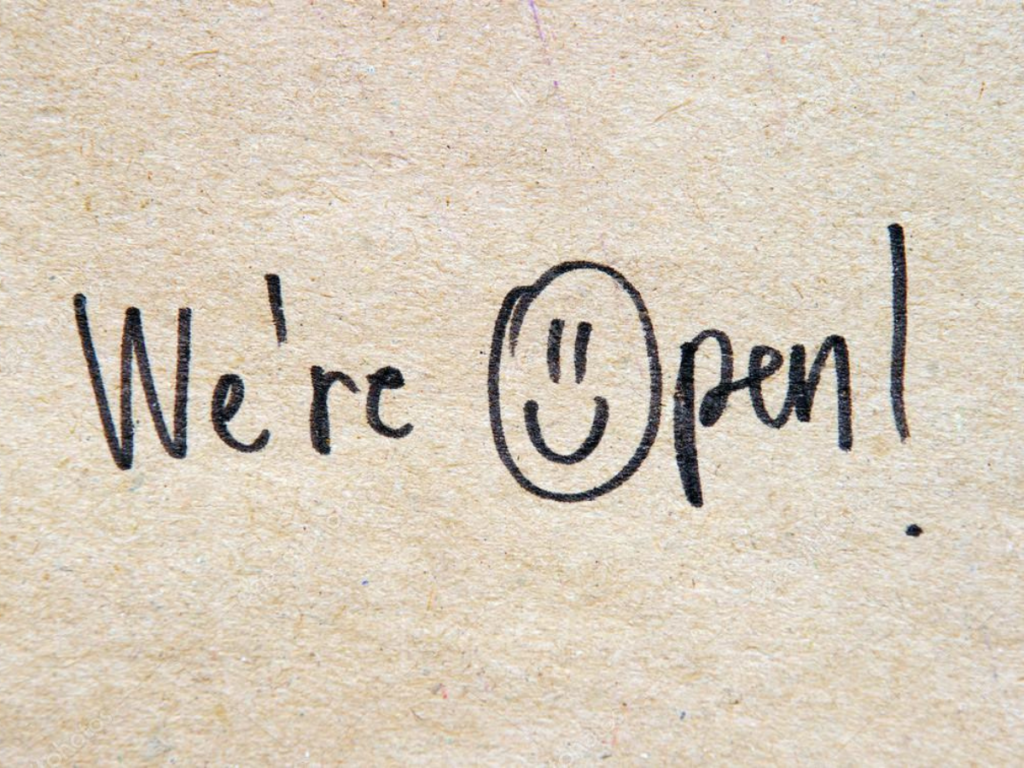 We're Open!